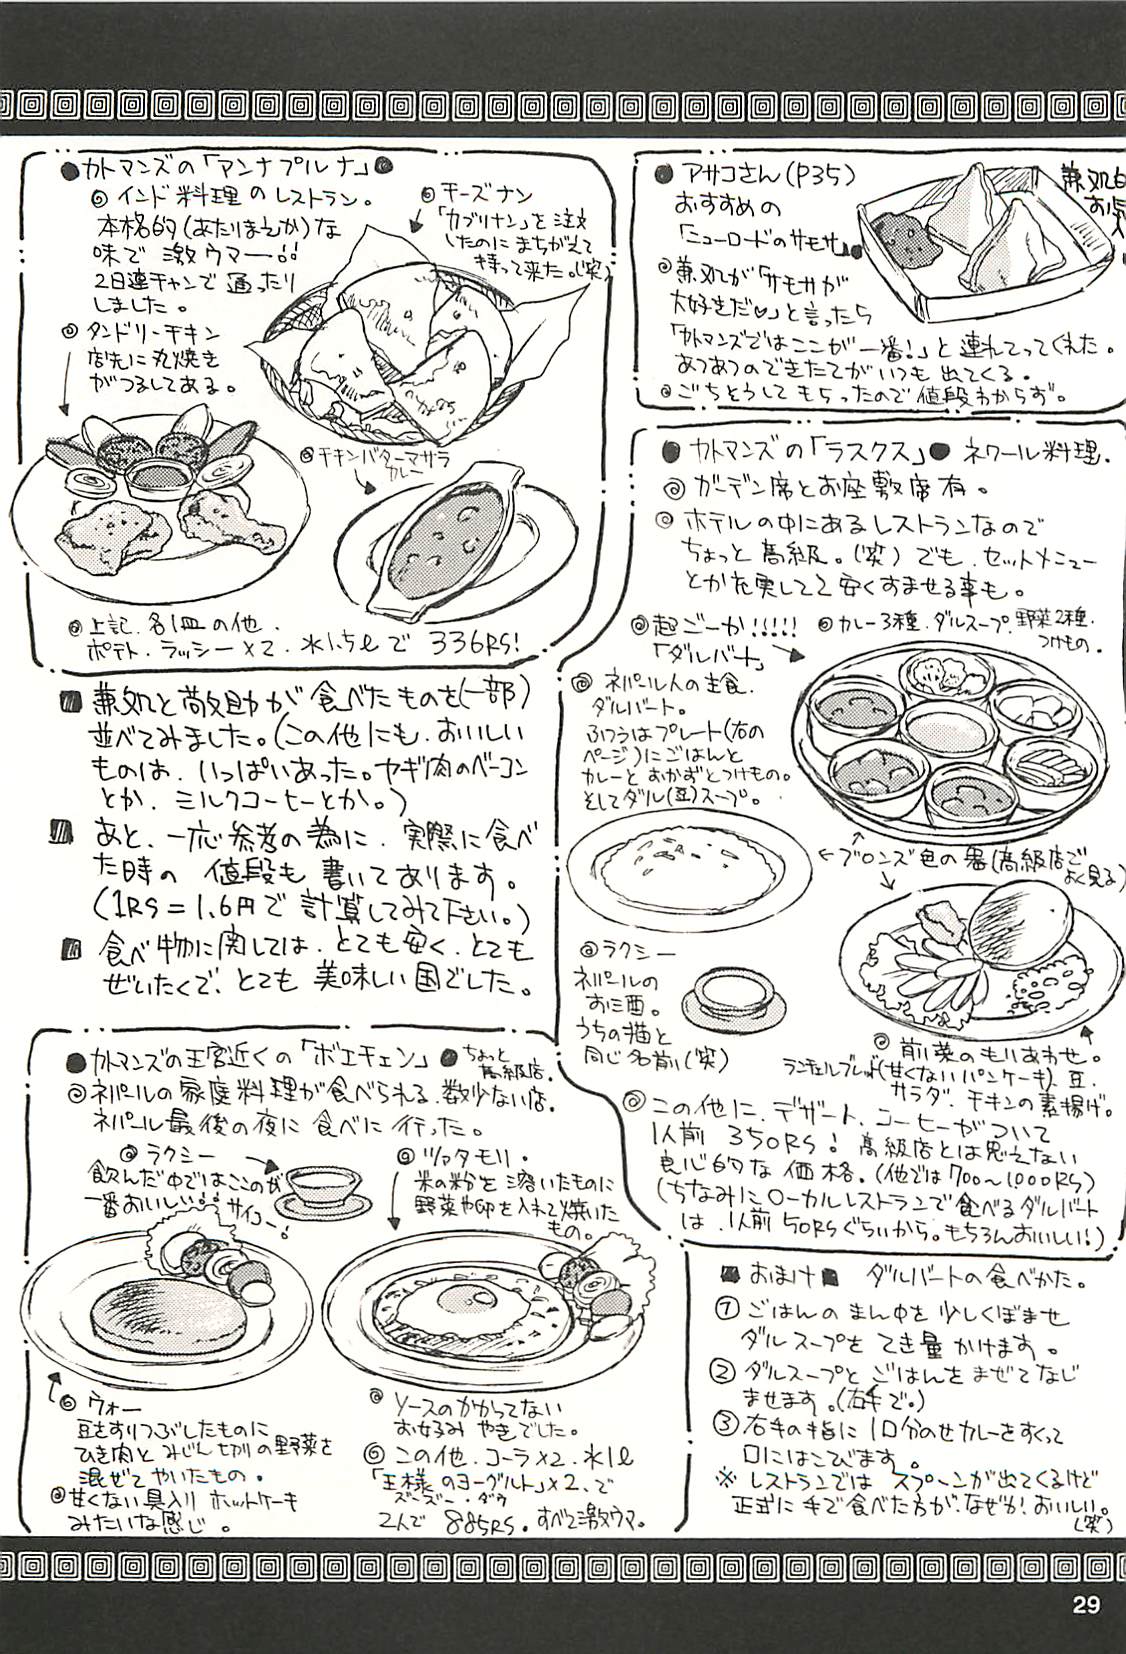 ●カトマンズの「アンナプルナ」●
◎インド料理のレストラン。
本格的(あたりまえか)な
味で激ウマー!!
2日連チャンで通ったり
しました。
◎タンドリーチキン
店先に丸焼き
がつるしてある。
◎チーズナン
「カブリナン」を注文
したのにまちがえて
持って来た。(笑)
◎チキンバターマサラ
カレー
◎上記、各1皿の他、
ポテト、ラッシー×2、水1.5ℓで 336RS!
■兼処と敵助が食べたものを(一部)
並べてみました。(この他にも、おいしい
ものは、いっぱいあった。ヤギ肉のベーコン
とか、ミルクコーヒーとか。)
■あと、一応参考の為に、実際に食べ
た時の 値段も書いてあります。
(1RS=1.6円で計算してみて下さい。)
■食べ物に関しては、とても安く、とても
ぜいたくで、とても美味しい国でした。
●アサコさん(P35)
おすすめの
「ニューロードのサモサ」●
◎兼処が「サモサが
大好きだ♡」と言ったら
「カトマンズではここが一番!」と連れてってくれた。
あつあつのできたてがいつも出てくる。
◎ごちそうしてもらったので値段わからず。
●カトマンズの「ラスクス」●ネワール料理.
◎ガーデン席とお座敷席有。
◎ホテルの中にあるレストランなので
ちょっと高級。(笑)でも、セットメニュー
とか充実してて安くすませる事も。
◎超ごーか!!!!!
「ダルバート」
◎カレー3種、ダルスープ、野菜2種、
つけもの。
◎ネパール人の主食、
ダルバート。
ふつうはプレート(右の
ページ)にごはんと
カレーとおかずとつけもの。
そしてダル(豆)スープ。
←ブロンズ色の器(高級店で
よく見る)
◎ラクシー
ネパールの
お酒。
うちの猫と
同じ名前(笑)
◎前菜のもりあわせ。
ランチェルブレッド(甘くないパンケーキ)、豆、
サラダ、チキンの素揚げ。
◎この他に、デザート、コーヒーがついて
1人前 350RS! 高級店とは思えない
良心的な価格。(他では700〜1000RS)
(ちなみにローカルレストランで食べるダルバート
は、1人前50RSぐらいから。もちろんおいしい!)
●カトマンズの王宮近くの「ボエチェン」●ちょっと
高級店.
◎ネパールの家庭料理が食べられる、数少ない店。
ネパール最後の夜に食べに行った。
◎ラクシー
飲んだ中ではここのが
一番おいしい!!サイコー!
◎ツァタモリ・
米の粉を溶いたものに
野菜や卵を入れて焼いた
もの。
◎ウォー
豆をすりつぶしたものに
ひき肉とみじん切りの野菜を
混ぜてやいたもの。
◎甘くない具入りホットケーキ
みたいな感じ。
◎ソースのかかってない
お好みやきでした。
◎この他、コーラ×2、水1ℓ
「王様のヨーグルト」×2、で
ズーズー・ダウ
2人で 885RS。すべて激ウマ。
■おまけ■ ダルバートの食べかた。
①ごはんのまん中を少しくぼませ
ダルスープをてき量かけます。
②ダルスープとごはんをまぜてなじ
ませます。(右手で。)
③右手の指に1口分のせカレーをすくって
口にはこびます。
※レストランではスプーンが出てくるけど
正式に手で食べた方が、なぜか!おいしい。
(笑)
29